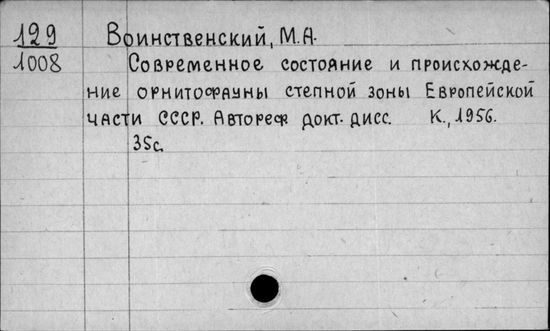 129 Воинственский, М.А.
1008 Современное состояние и происхожде-
ние орнитофауны степной зоны Европейской
части СССР. Автореф докт. дисс. К., 1956.
35с.